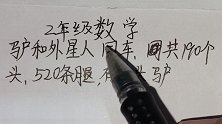 2年级数学
驴和外星人同车,圈共190个
头,520条腿,有 驴